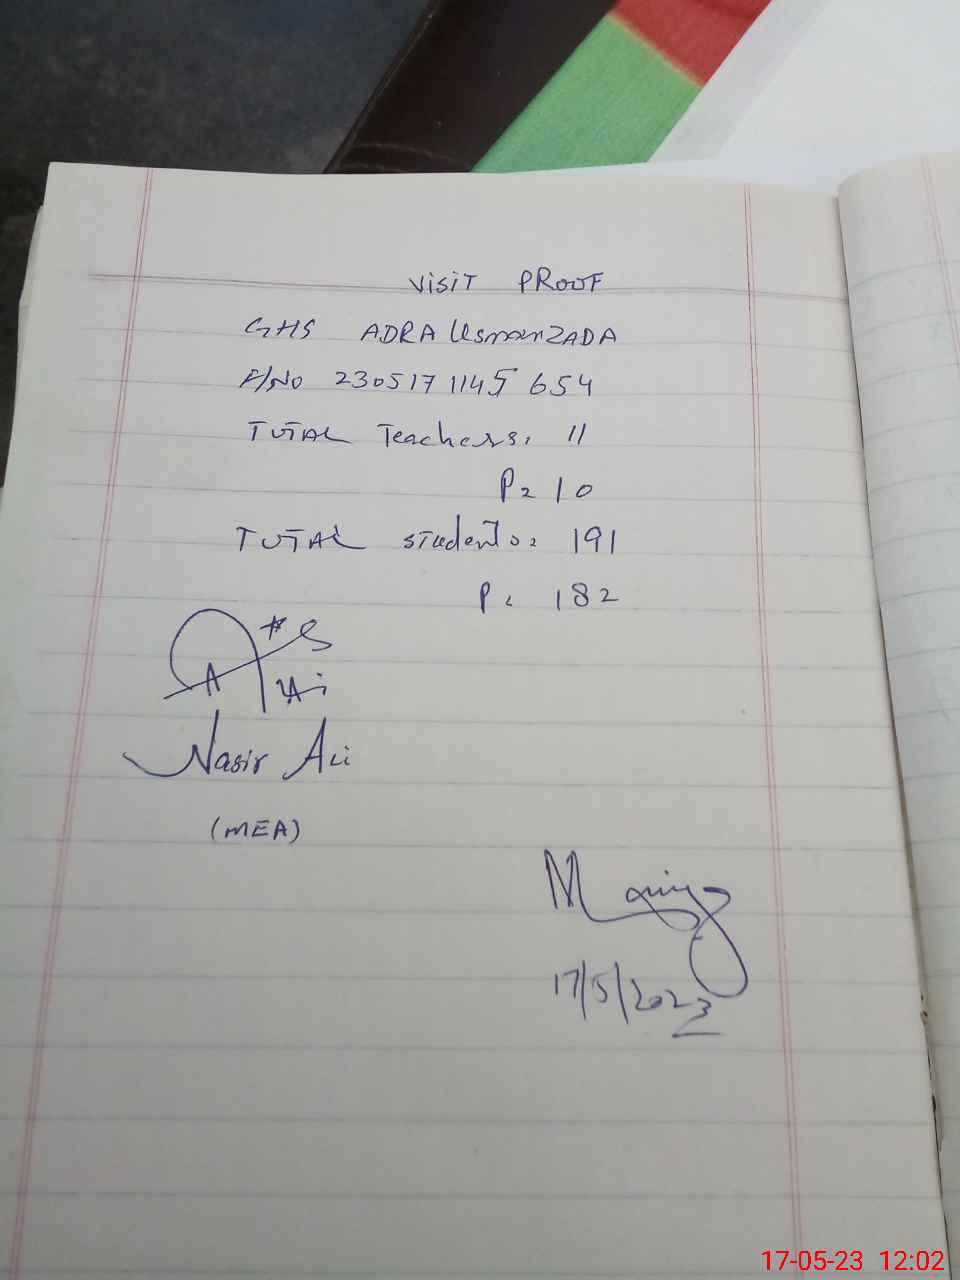 VISIT PROOF
GHS ADRA USmanZADA
F/No 230517 1145 654
TOTAL Teachers: 11
P= 10
TOTAL students: 191
P: 182
Nasir Ali
(MEA)
17/5/2023
17-05-23 12:02